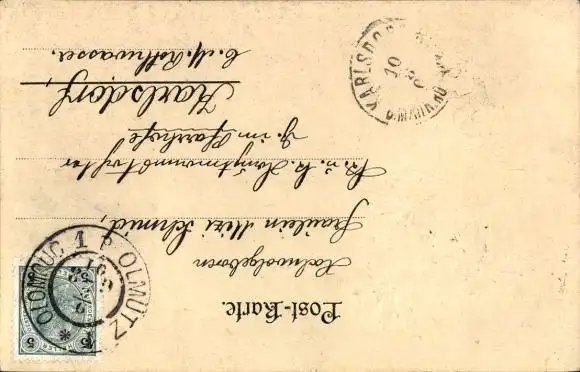 Post-Karte.
Hochwolgeboren
Fräulein Mizi Schmid,
K. u. k. Hauptmannstochter
z. im Pfarrhofe
Karlsdorf,
b. M. Rothwasser.
OLOMOUC 1 OLMÜTZ
5 5
KARLSDORF
10